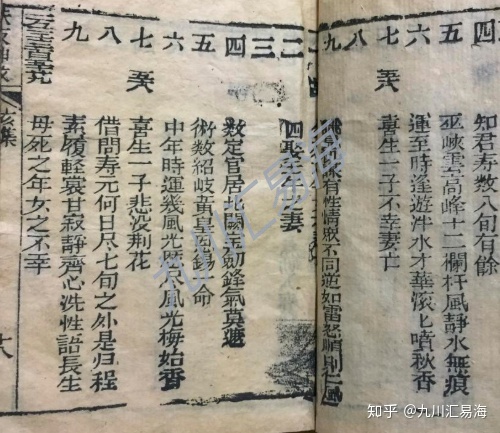 四
五 知君寿数八旬有餘
六 巫峽雲高峰十二欄杆風靜水無痕
七 運至時逢遊泮水才華滚匕噴秋香
八 喜生一子不幸妻亡
九 有性情最不同逆如電怒順則仁風
二 四娶 妻
三
四 数定官居北闕金劒鋒氣莫
五 術数紹岐黄皇恩錫大命
六 中年時運幾風光 風光梅始香
七 喜生一子悲没荆花
八 借問寿元何日尽七旬之外是归程
九 素履輕裘甘寂静齊心洗性語長生
母死之年女之不幸
亥集
九川汇易海
知乎 @九川汇易海